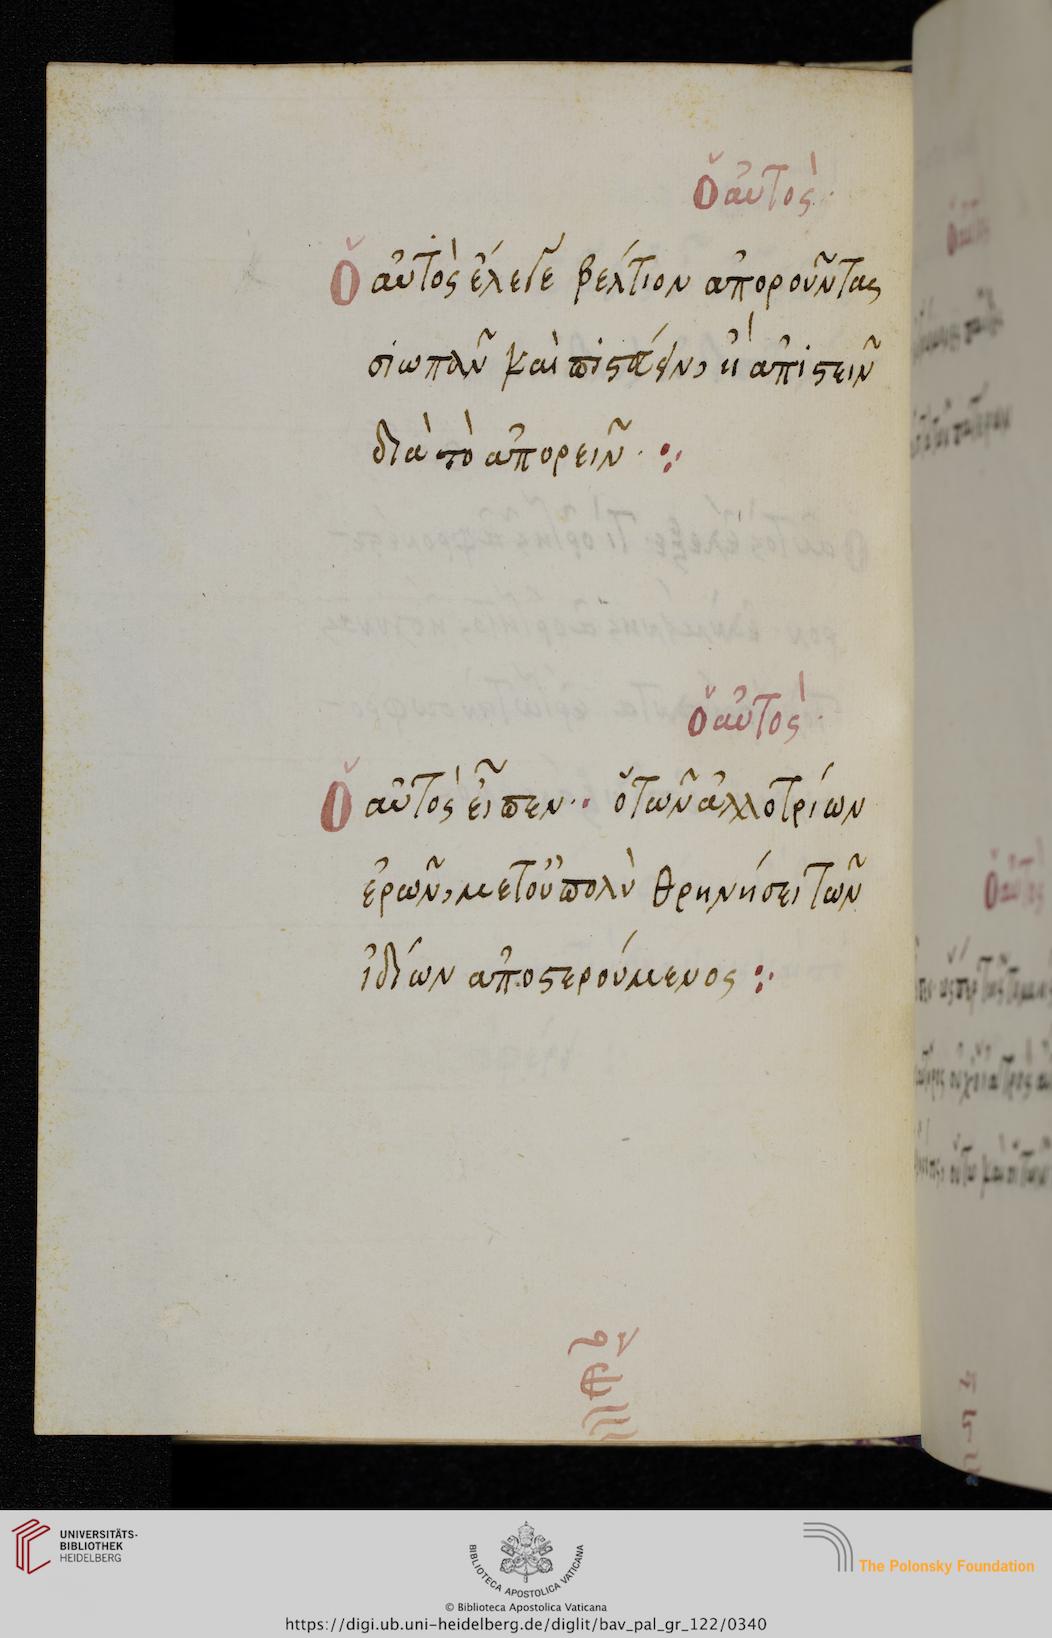 ὁ αὐτὸς.
ὁ αὐτὸς ἔλεγε βέλτιον ἀποροῦντας
σιωπᾶν καὶ ἢ ἀπιστεῖν
διὰ τὸ ἀπορεῖν.
ὁ αὐτὸς.
ὁ αὐτὸς εἶπεν. ὁ τῶν ἀλλοτρίων
ἐρῶν, μετ' οὐ πολὺ θρηνήσει τῶν
ἰδίων ἀποστερούμενος
UNIVERSITÄTS-
BIBLIOTHEK
HEIDELBERG
BIBLIOTECA APOSTOLICA VATICANA
The Polonsky Foundation
© Biblioteca Apostolica Vaticana
https://digi.ub.uni-heidelberg.de/diglit/bav_pal_gr_122/0340